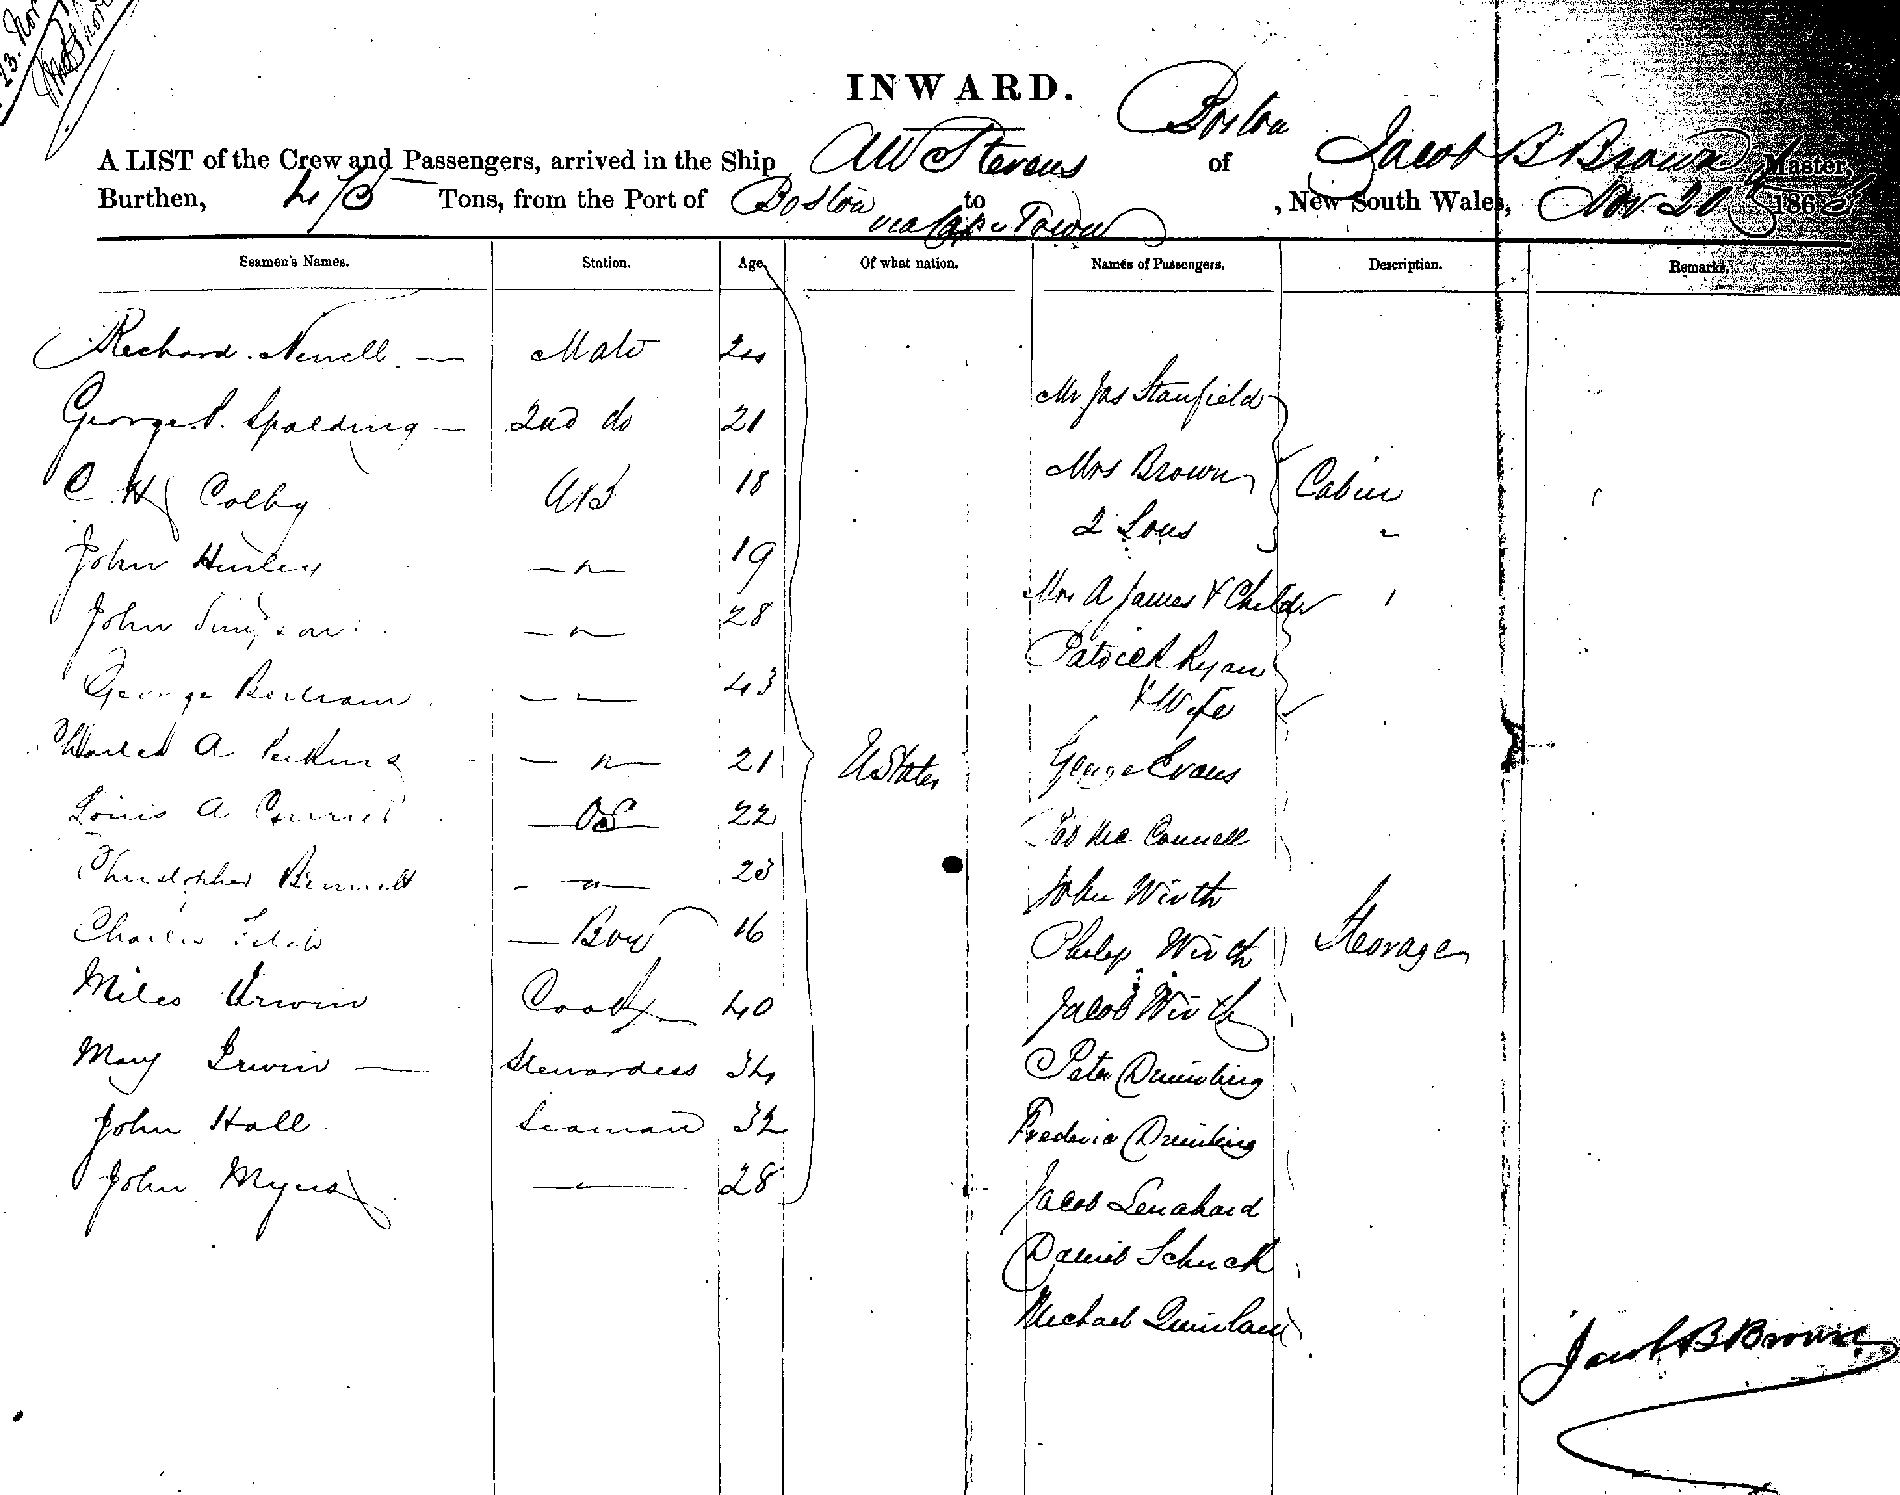 INWARD.
A LIST of the Crew and Passengers, arrived in the Ship A W Stevens of Boston Jacob B Brown Master,
Burthen, Tons, from the Port of Boston via Cape Town to , New South Wales, Nov 20 186
Seamen's Names. Station. Age. Of what nation. Names of Passengers. Description. Remarks.
Richard Newell Mate
Mr Jas Stanfield
George Spalding 2nd do 21
Mrs Brown Cabin
C H Colby AB 18
2 Sons "
John 19
Mrs A James & Child
John Simpson 28
Patrick Ryan
& Wife
George Bertram 43
Charles A Perkins — " — 21 U States George Evans
Louis A Currier OS 22
Pat Mc Connell
Christopher Bennett — " — 23
John Wirth
Charles Boy 16
Philip Wirth Steerage
Miles Irwin Cook 40
Jacob Wirth
Mary Irwin Stewardess 34
Peter
John Hall Seaman 32
Frederic
John Myers 28
Jacob
Daniel Schuck
Michael Quinlan
Jacob B Brown